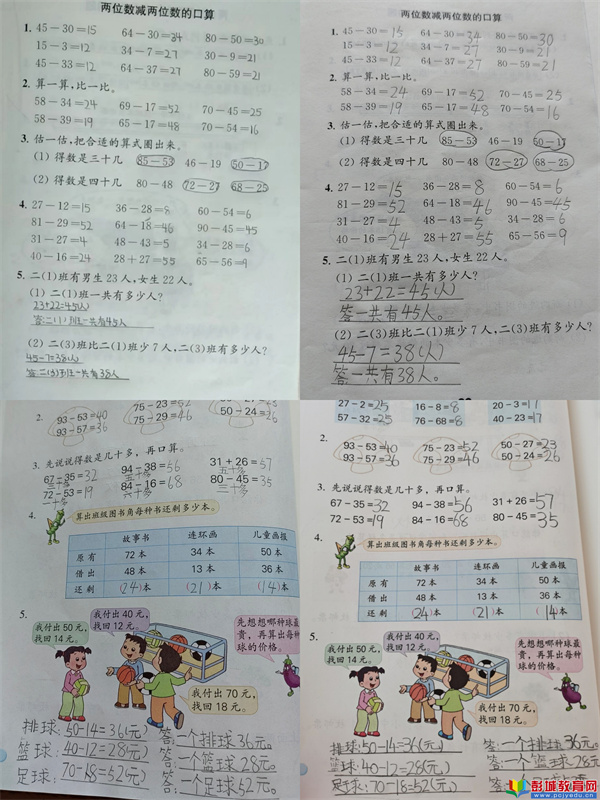 两位数减两位数的口算
1. 45-30=15 64-30=34 80-50=30
15-3=12 34-7=27 30-9=21
45-33=12 64-37=27 80-59=21
2. 算一算,比一比。
58-34=24 69-17=52 70-45=25
58-39=19 65-17=48 70-54=16
3. 估一估,把合适的算式圈出来。
(1) 得数是三十几 85-53 46-19 50-17
(2) 得数是四十几 80-48 72-27 68-25
4. 27-12=15 36-28=8 60-54=6
81-29=52 64-18=46 90-45=45
31-27=4 48-43=5 34-28=6
40-16=24 28+27=55 65-56=9
5. 二(1)班有男生23人,女生22人。
(1) 二(1)班一共有多少人?
23+22=45(人)
答:二(1)班一共有45人
(2) 二(3)班比二(1)班少7人,二(3)班有多少人?
45-7=38(人)
答:二(3)班一共有38人
两位数减两位数的口算
1. 45-30=15 64-30=34 80-50=30
15-3=12 34-7=27 30-9=21
45-33=12 64-37=27 80-59=21
2. 算一算,比一比。
58-34=24 69-17=52 70-45=25
58-39=19 65-17=48 70-54=16
3. 估一估,把合适的算式圈出来。
(1) 得数是三十几 85-53 46-19 50-17
(2) 得数是四十几 80-48 72-27 68-25
4. 27-12=15 36-28=8 60-54=6
81-29=52 64-18=46 90-45=45
31-27=4 48-43=5 34-28=6
40-16=24 28+27=55 65-56=9
5. 二(1)班有男生23人,女生22人。
(1) 二(1)班一共有多少人?
23+22=45(人)
答一共有45人。
(2) 二(3)班比二(1)班少7人,二(3)班有多少人?
45-7=38(人)
答一共有38人。
2. 93-53=40 75-23=52
93-57=36 75-29=46 50-24=26
3. 先说说得数是几十多,再口算。
67-35=32 94-38=56 31+26=57
三十多 五十多 五十多
72-53=19 84-16=68 80-45=35
十多 六十多 三十多
4. 算出班级图书角每种书还剩多少本。
故事书 连环画 儿童画报
原有 72本 34本 50本
借出 48本 13本 36本
还剩 (24)本 (21)本 (14)本
5. 我付出50元,找回14元。
我付出40元,找回12元。
先想想哪种球最贵,再算出每种球的价格。
我付出70元,找回18元。
排球:50-14=36(元) 答:一个排球36元。
篮球:40-12=28(元) 答:一个篮球28元。
足球:70-18=52(元) 答:一个足球52元。
27-2=25 16-8=8 20-3=17
57-32=25 76-68=8 40-23=17
2. 93-53=40 75-23=52 50-27=23
93-57=36 75-29=46 50-24=26
3. 先说说得数是几十多,再口算。
67-35=32 94-38=56 31+26=57
72-53=19 84-16=68 80-45=35
4. 算出班级图书角每种书还剩多少本。
故事书 连环画 儿童画报
原有 72本 34本 50本
借出 48本 13本 36本
还剩 (24)本 (21)本 (14)本
5. 我付出50元,找回14元。
我付出40元,找回12元。
先想想哪种球最贵,再算出每种球的价格。
我付出70元,找回18元。
排球:50-14=36(元) 答:一个排球36元。
篮球:40-12=28(元) 答:一个篮球28元
足球:70-18=52(元)
彭城教育网
www.pcjyedu.cn